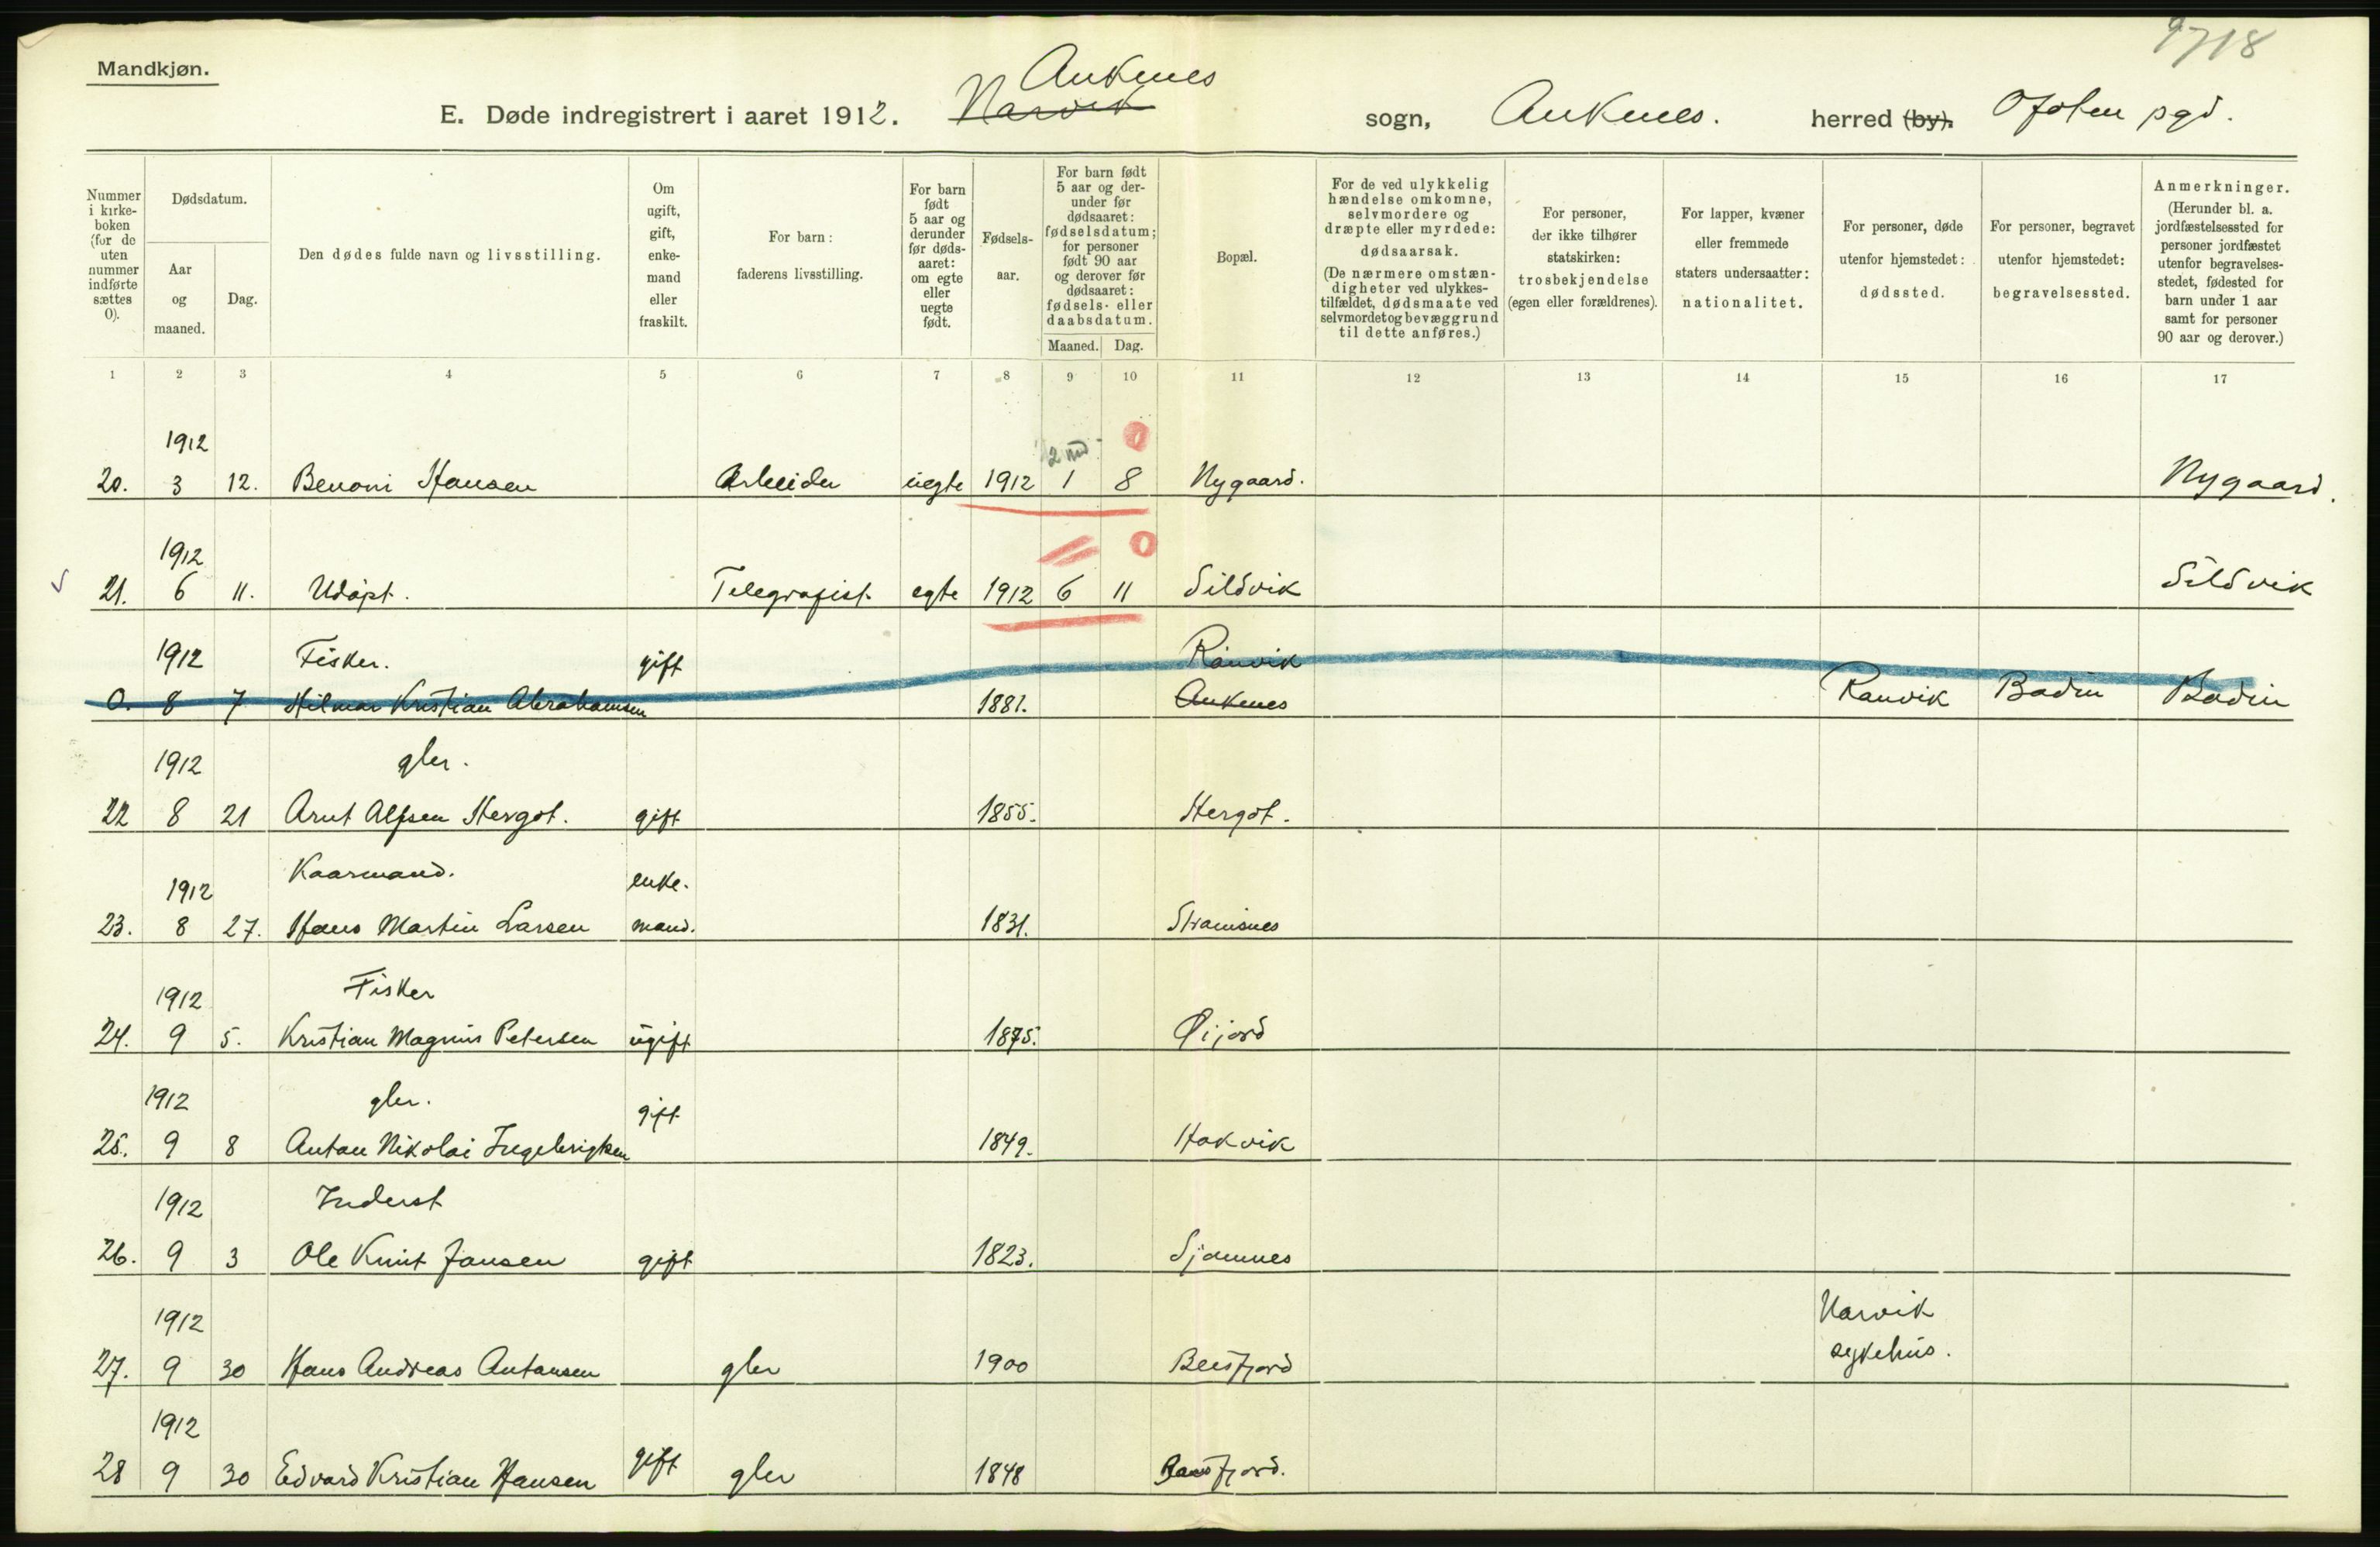 9718
Mandkjøn.
Ankenes
E. Døde indregistrert i aaret 1912. Narvik sogn, Ankenes. herred (by). Ofoten pgd.
Nummer i kirke-boken (for de uten nummer indførte sættes 0).
Dødsdatum.
Aar og maaned.
Dag.
Den dødes fulde navn og livsstilling.
Om ugift, gift, enke-mand eller fraskilt.
For barn: faderens livsstilling.
For barn født 5 aar og derunder før døds-aaret: om egte eller uegte født.
Fødsels-aar.
For barn født 5 aar og der-under før dødsaaret: fødselsdatum; for personer født 90 aar og derover før dødsaaret: fødsels- eller daabsdatum.
Maaned. Dag.
Bopæl.
For de ved ulykkelig hændelse omkomne, selvmordere og dræpte eller myrdede: dødsaarsak. (De nærmere omstæn-digheter ved ulykkes-tilfældet, dødsmaate ved selvmordet og bevæggrund til dette anføres.)
For personer, der ikke tilhører statskirken: trosbekjendelse (egen eller forældrenes).
For lapper, kvæner eller fremmede staters undersaatter: nationalitet.
For personer, døde utenfor hjemstedet: dødssted.
For personer, begravet utenfor hjemstedet: begravelsessted.
Anmerkninger. (Herunder bl. a. jordfæstelsessted for personer jordfæstet utenfor begravelses-stedet, fødested for barn under 1 aar samt for personer 90 aar og derover.)
1 2 3 4 5 6 7 8 9 10 11 12 13 14 15 16 17
1912 2 md 0
20. 3 12. Benoni Hansen Arbeider uegte 1912 1 8 Nygaard. Nygaard.
1912 0
21. 6 11. Udøpt. Telegrafist. egte 1912 6 11 Sildvik Sildvik
1912 Fisker. gift Rånvik
0. 8 7 Hilmar Kristian Abrahamsen 1881. Ankenes Ranvik Bodin Bodin
1912 gbr.
22 8 21 Arnt Alfsen Hergot. gift 1855. Hergot.
1912 Kaarmand. enke-
23. 8 27. Hans Martin Larsen mand. 1831. Straumsnes
1912 Fisker
24. 9 5. Kristian Magnus Petersen ugift 1875. Øijord
1912 gbr. gift
25. 9 8 Anton Nikolai Ingebrigtsen 1849. Hakvik
1912 Inderst
26. 9 3 Ole Knut Jansen gift 1823. Sjomnes
1912 Narvik
27. 9 30 Hans Andreas Antonsen gbr 1900 Beisfjord sykehus.
1912
28 9 30 Edvard Kristian Hansen gift gbr 1848